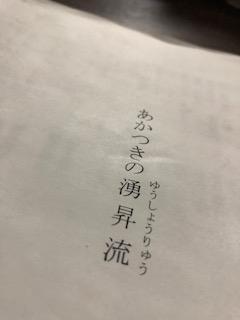 あかつきの湧昇流
ゆうしょうりゅう